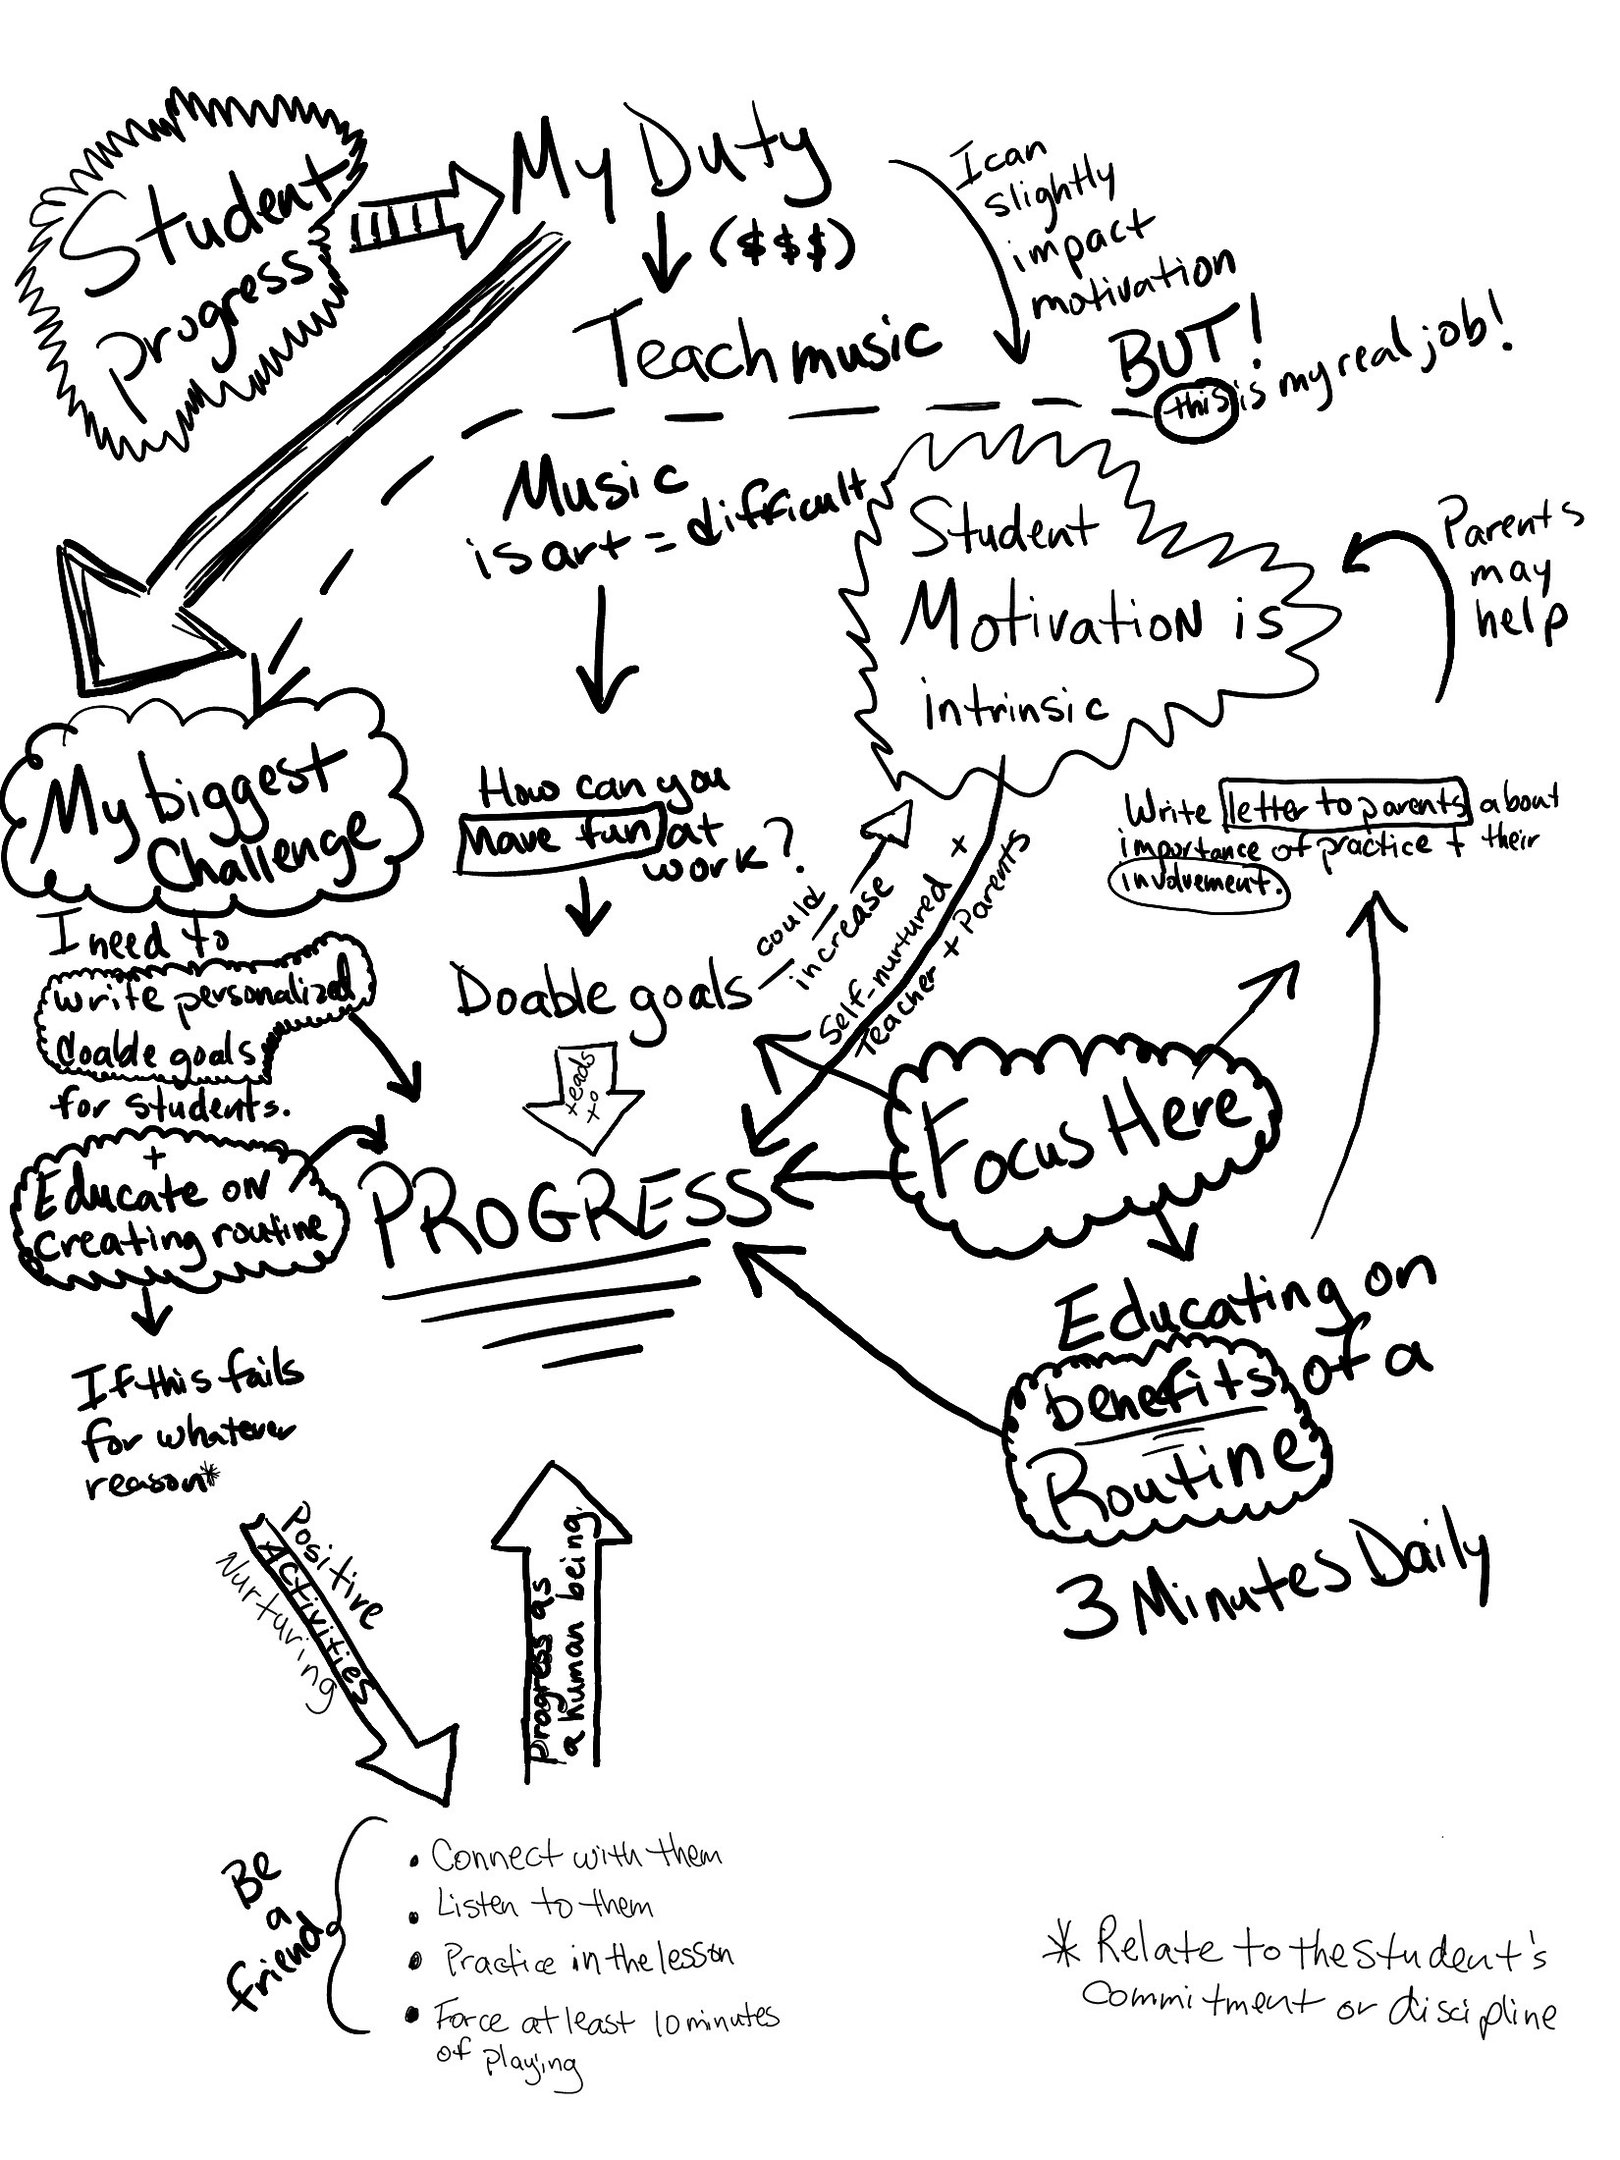 Student
progress
My Duty
($$$)
Teach music
I can
slightly
impact
motivation
BUT!
this is my real job!
Music
is art = difficult
Student
Motivation is
intrinsic
Parents
may
help
My biggest
Challenge
How can you
have fun at
work?
Write letter to parents about
importance of practice + their
involvement.
I need to
write personalized
doable goals
for students.
Doable goals
could
increase
Self-nurtured +
Teacher + Parents
leads
to
Focus Here
+
Educate on
creating routine
PROGRESS
Educating on
benefits of a
Routine
3 Minutes Daily
If this fails
for whatever
reason*
Positive
Activities
Nurturing
progress as
a human being.
Be
a
friend
• Connect with them
• Listen to them
• Practice in the lesson
• Force at least 10 minutes
of playing
* Relate to the student's
commitment or discipline